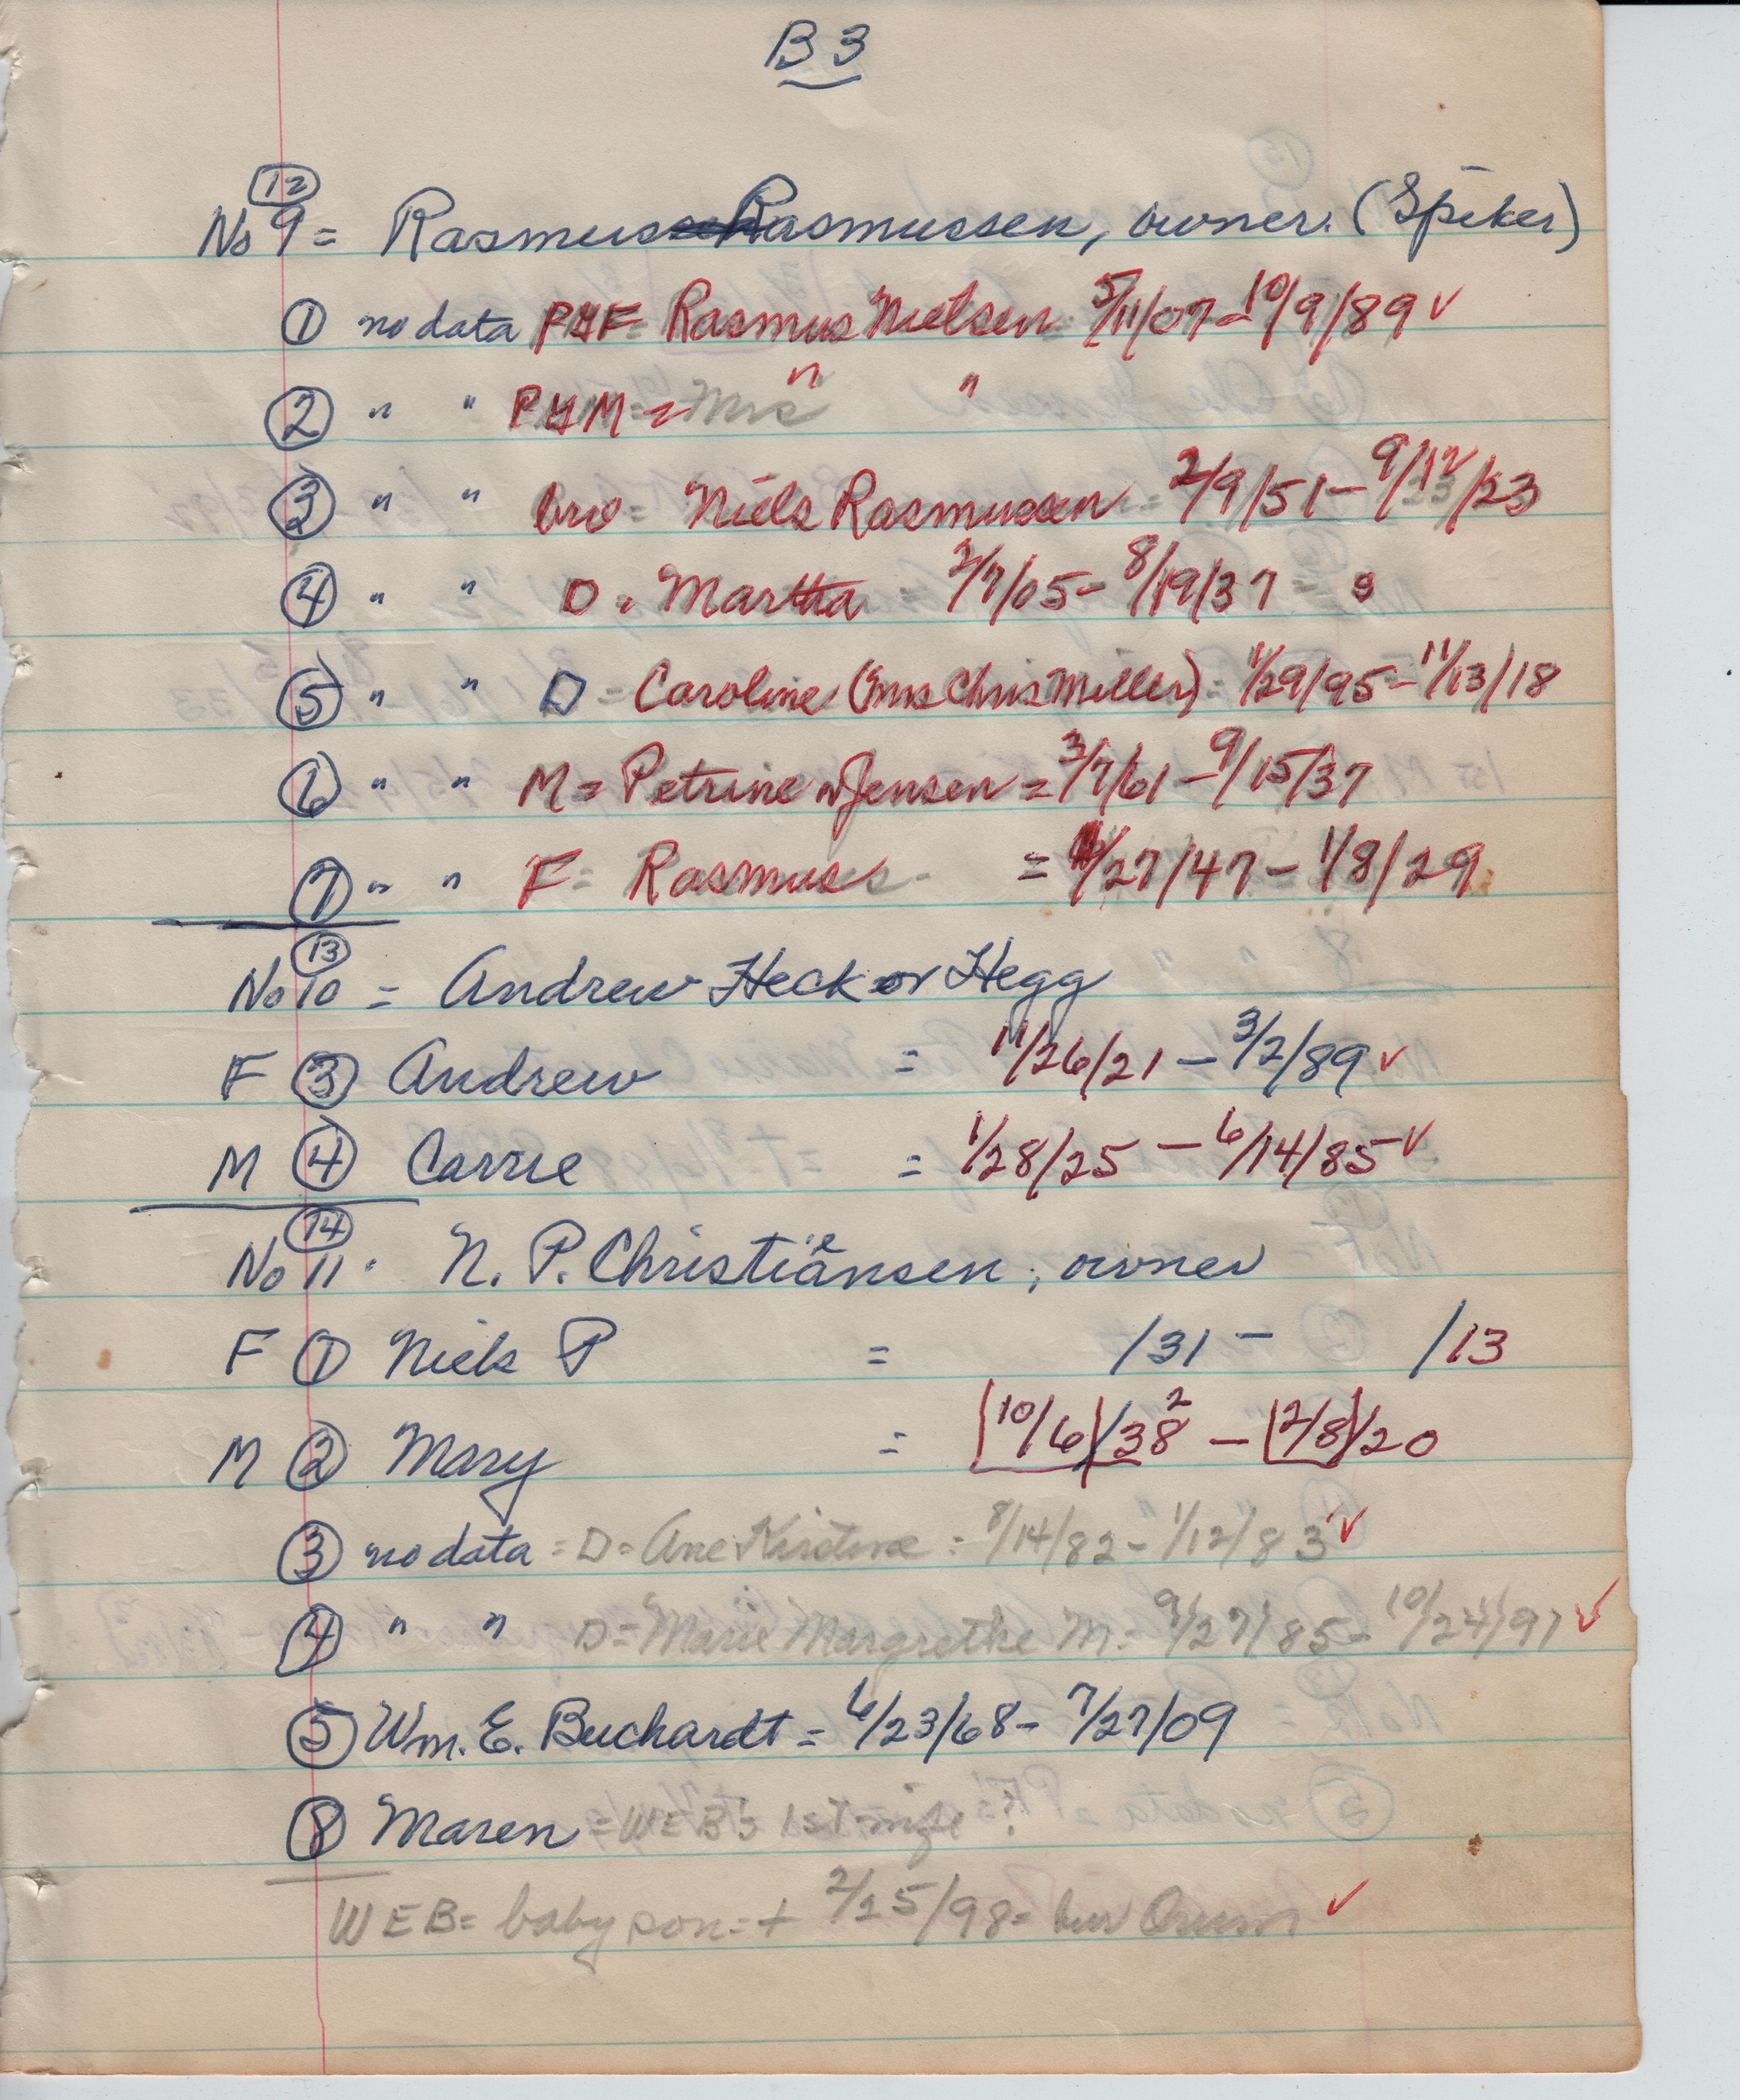 B 3
12
No 9 = Rasmus Rasmussen, owner. (Spiker)
1 no data P4F = Rasmus Nielsen = 5/11/07 - 10/9/89 ✓
2 " " P4M = Mrs " "
3 " " bro = Niels Rasmussen = 2/9/51 - 9/12/23
4 " " D. Martha = 2/7/05 - 8/19/37
5 " " D = Caroline (Mrs Chris Miller) = 11/29/95 - 11/13/18
6 " " M = Petrine n Jensen = 3/7/61 - 9/15/37
7 " " F = Rasmus = /27/47 - 1/8/29
13
No 10 = Andrew Heck or Hegg
F 3 Andrew = 11/26/21 - 3/2/89 ✓
M 4 Carrie = 1/28/25 - 6/14/85 ✓
14
No 11. N. P. Christiansen, owner
e
F 1 Niels P = /31 - /13
M 2 Mary = [10/6]/38² - [12/8]/20
3 no data = D = Ane Kirstine = 8/14/82 - 1/12/83 ✓
4 " " D = Marie Margrethe M = 9/27/85 - 10/24/97 ✓
5 Wm. E. Buchardt = 6/23/68 - 7/27/09
8 Maren = WEB's 1st wife?
WEB = baby son = + 2/25/98 = bur Orum ✓